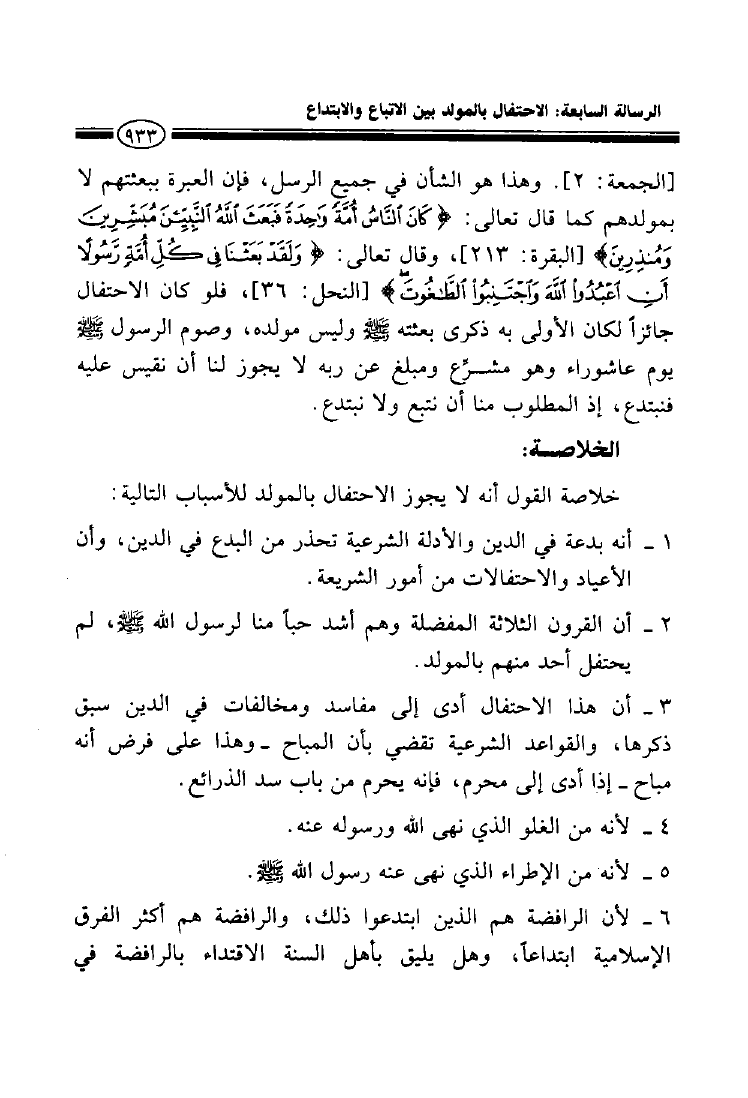 الرسالة السابعة: الاحتفال بالمولد بين الاتباع والابتداع
٩٣٣
[الجمعة: ٢]. وهذا هو الشأن في جميع الرسل، فإن العبرة ببعثتهم لا
بمولدهم كما قال تعالى: ﴿كَانَ ٱلنَّاسُ أُمَّةً وَٰحِدَةً فَبَعَثَ ٱللَّهُ ٱلنَّبِيِّـۧنَ مُبَشِّرِينَ
وَمُنذِرِينَ﴾ [البقرة: ٢١٣]، وقال تعالى: ﴿وَلَقَدْ بَعَثْنَا فِى كُلِّ أُمَّةٍ رَّسُولًا
أَنِ ٱعْبُدُوا۟ ٱللَّهَ وَٱجْتَنِبُوا۟ ٱلطَّٰغُوتَ ۖ﴾ [النحل: ٣٦]، فلو كان الاحتفال
جائزاً لكان الأولى به ذكرى بعثته ﷺ وليس مولده، وصوم الرسول ﷺ
يوم عاشوراء وهو مشرِّع ومبلغ عن ربه لا يجوز لنا أن نقيس عليه
فنبتدع، إذ المطلوب منا أن نتبع ولا نبتدع.
الخلاصة:
خلاصة القول أنه لا يجوز الاحتفال بالمولد للأسباب التالية:
١ ـ أنه بدعة في الدين والأدلة الشرعية تحذر من البدع في الدين، وأن
الأعياد والاحتفالات من أمور الشريعة.
٢ ـ أن القرون الثلاثة المفضلة وهم أشد حباً منا لرسول الله ﷺ، لم
يحتفل أحد منهم بالمولد.
٣ ـ أن هذا الاحتفال أدى إلى مفاسد ومخالفات في الدين سبق
ذكرها، والقواعد الشرعية تقضي بأن المباح ـ وهذا على فرض أنه
مباح ـ إذا أدى إلى محرم، فإنه يحرم من باب سد الذرائع.
٤ ـ لأنه من الغلو الذي نهى الله ورسوله عنه.
٥ ـ لأنه من الإطراء الذي نهى عنه رسول الله ﷺ.
٦ ـ لأن الرافضة هم الذين ابتدعوا ذلك، والرافضة هم أكثر الفرق
الإسلامية ابتداعاً، وهل يليق بأهل السنة الاقتداء بالرافضة في